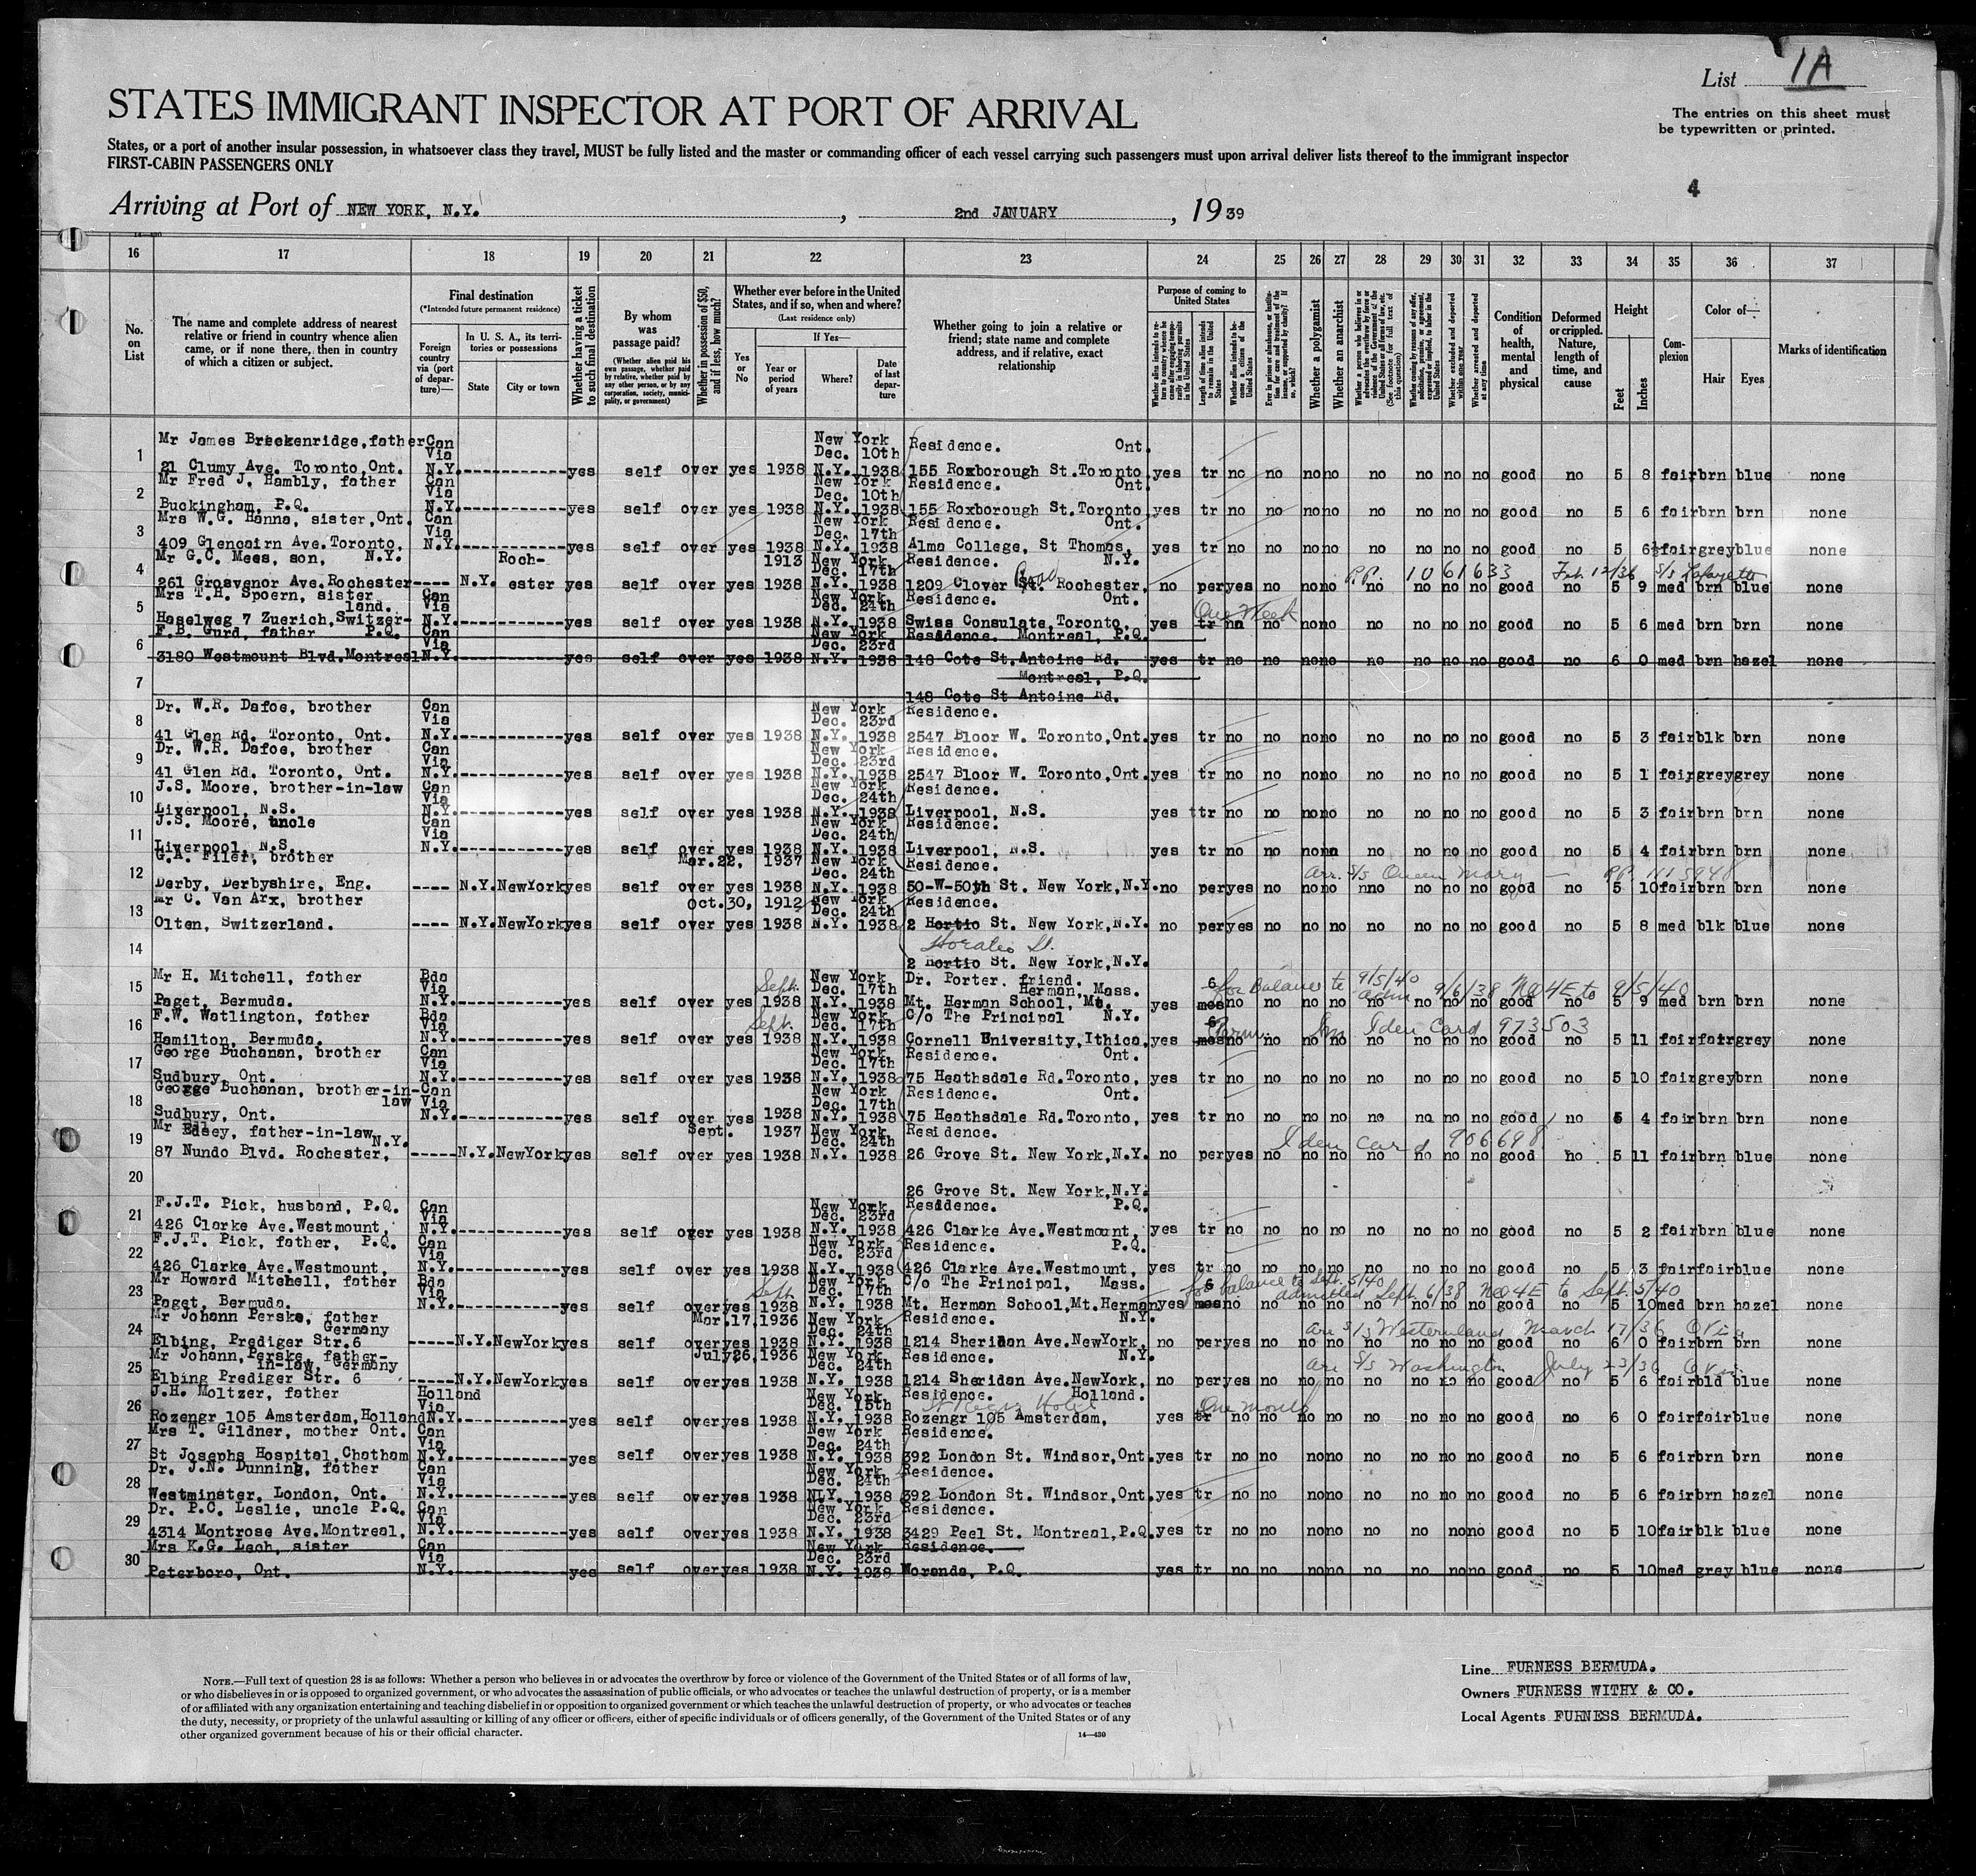 List 1A
The entries on this sheet must
be typewritten or printed.
STATES IMMIGRANT INSPECTOR AT PORT OF ARRIVAL
States, or a port of another insular possession, in whatsoever class they travel, MUST be fully listed and the master or commanding officer of each vessel carrying such passengers must upon arrival deliver lists thereof to the immigrant inspector
FIRST-CABIN PASSENGERS ONLY
4
Arriving at Port of NEW YORK, N.Y. , 2nd JANUARY , 1939
16 17 18 19 20 21 22 23 24 25 26 27 28 29 30 31 32 33 34 35 36 37
No. on List
The name and complete address of nearest relative or friend in country whence alien came, or if none there, then in country of which a citizen or subject.
Final destination
(*Intended future permanent residence)
Foreign country via (port of departure)—
In U. S. A., its territories or possessions
State
City or town
Whether having a ticket to such final destination
By whom was passage paid?
(Whether alien paid his own passage, whether paid by relative, whether paid by any other person, or by any corporation, society, municipality, or government)
Whether in possession of $50, and if less, how much?
Whether ever before in the United States, and if so, when and where?
(Last residence only)
Yes or No
If Yes—
Year or period of years
Where?
Date of last departure
Whether going to join a relative or friend; state name and complete address, and if relative, exact relationship
Purpose of coming to United States
Length of time alien intends to remain in the United States
Whether alien intends to become a citizen of the United States
Whether a polygamist
Whether an anarchist
Whether excluded and deported within one year
Whether arrested and deported at any time
Condition of health, mental and physical
Deformed or crippled. Nature, length of time, and cause
Height
Feet
Inches
Complexion
Color of—
Hair
Eyes
Marks of identification
1 Mr James Breckenridge, father Can Via New York Dec. 10th Residence. Ont.
21 Clumy Ave. Toronto, Ont. N.Y. yes self over yes 1938 N.Y. 1938 155 Roxborough St. Toronto yes tr no no no no no no no no good no 5 8 fair brn blue none
2 Mr Fred J. Hambly, father Can Via New York Dec. 10th Residence. Ont.
Buckingham, P.Q. N.Y. yes self over yes 1938 N.Y. 1938 155 Roxborough St. Toronto, yes tr no no no no no no no no good no 5 6 fair brn brn none
3 Mrs W.G. Hanna, sister, Ont. Can Via New York Dec. 17th Residence. Ont.
409 Glencairn Ave. Toronto, N.Y. yes self over yes 1938 N.Y. 1938 Alma College, St Thomas, yes tr no no no no no no no no good no 5 6½ fair grey blue none
4 Mr G.C. Mees, son, N.Y. Roch- 1913 New York Dec. 17th Residence. N.Y.
P.P. 1061633 Feb 12/36 S/S Lafayette
261 Grosvenor Ave. Rochester ---- N.Y. ester yes self over yes 1938 N.Y. 1938 1209 Clover St. Rochester, no per yes no no no no no no no good no 5 9 med brn blue none
5 Mrs T.H. Spoern, sister land. Can Via New York Dec. 24th Residence. Ont.
One Week
Haselweg 7 Zuerich, Switzer- N.Y. yes self over yes 1938 N.Y. 1938 Swiss Consulate, Toronto, yes tr no no no no no no no no good no 5 6 med brn brn none
6 F.B. Gurd, father P.Q. Can Via New York Dec. 23rd Residence. Montreal, P.Q.
3180 Westmount Blvd. Montreal N.Y. yes self over yes 1938 N.Y. 1938 148 Cote St. Antoine Rd. yes tr no no no no no no no no good no 6 0 med brn hazel none
7 Montreal, P.Q.
148 Cote St Antoine Rd.
8 Dr. W.R. Dafoe, brother Can Via New York Dec. 23rd Residence.
41 Glen Rd. Toronto, Ont. N.Y. yes self over yes 1938 N.Y. 1938 2547 Bloor W. Toronto, Ont. yes tr no no no no no no no no good no 5 3 fair blk brn none
9 Dr. W.R. Dafoe, brother Can Via New York Dec. 23rd Residence.
41 Glen Rd. Toronto, Ont. N.Y. yes self over yes 1938 N.Y. 1938 2547 Bloor W. Toronto, Ont. yes tr no no no no no no no no good no 5 1 fair grey grey none
10 J.S. Moore, brother-in-law Can Via New York Dec. 24th Residence.
Liverpool, N.S. N.Y. yes self over yes 1938 N.Y. 1938 Liverpool, N.S. yes ttr no no no no no no no no good no 5 3 fair brn brn none
11 J.S. Moore, uncle Can Via New York Dec. 24th Residence.
Liverpool, N.S. N.Y. yes self over yes 1938 N.Y. 1938 Liverpool, N.S. yes tr no no no no no no no no good no 5 4 fair brn brn none
12 G.A. Filer, brother Mar.22, 1937 New York Dec. 24th Residence.
arr. S/S Queen Mary — P.P.
Derby, Derbyshire, Eng. ---- N.Y. New York yes self over yes 1938 N.Y. 1938 50-W-50th St. New York, N.Y. no per yes no no no nno no no no good no 5 10 fair brn brn none
13 Mr C. Van Arx, brother Oct.30, 1912 New York Dec. 24th Residence.
Olten, Switzerland. ---- N.Y. New York yes self over yes 1938 N.Y. 1938 2 Hortio St. New York, N.Y. no per yes no no no no no no no good no 5 8 med blk blue none
14 Horatio St.
2 Hortio St. New York, N.Y.
15 Mr H. Mitchell, father Bda Via Sept. New York Dec. 17th Dr. Porter. friend. Herman, Mass.
6 for balance to 9/5/40 adm 9/6/38 No 4E to 9/5/40
Paget, Bermuda. N.Y. yes self over yes 1938 N.Y. 1938 Mt. Herman School, Mt. yes mos no no no no no no no no good no 5 9 med brn brn none
16 F.W. Watlington, father Bda Via Sept. New York Dec. 17th C/o The Principal N.Y.
6 Perm. Im Iden Card 973503
Hamilton, Bermuda. N.Y. yes self over yes 1938 N.Y. 1938 Cornell University, Ithica, yes mos no no no no no no no no good no 5 11 fair fair grey none
17 George Buchanan, brother Can Via New York Dec. 17th Residence. Ont.
Sudbury, Ont. N.Y. yes self over yes 1938 N.Y. 1938 75 Heathsdale Rd. Toronto, yes tr no no no no no no no no good no 5 10 fair grey brn none
18 George Buchanan, brother-in-law Can Via New York Dec. 17th Residence. Ont.
Sudbury, Ont. N.Y. yes self over yes 1938 N.Y. 1938 75 Heathsdale Rd. Toronto, yes tr no no no no no no no no good no 5 4 fair brn brn none
19 Mr Edsey, father-in-law N.Y. Sept. 1937 New York Dec. 24th Residence.
Iden Card 906698
87 Nundo Blvd. Rochester, ----- N.Y. New York yes self over yes 1938 N.Y. 1938 26 Grove St. New York, N.Y. no per yes no no no no no no no good no 5 11 fair brn blue none
20 26 Grove St. New York, N.Y.
21 F.J.T. Pick, husband, P.Q. Can Via New York Dec. 23rd Residence. P.Q.
426 Clarke Ave. Westmount, N.Y. yes self over yes 1938 N.Y. 1938 426 Clarke Ave. Westmount, yes tr no no no no no no no no good no 5 2 fair brn blue none
22 F.J.T. Pick, father, P.Q. Can Via New York Dec. 23rd Residence. P.Q.
426 Clarke Ave. Westmount, N.Y. yes self over yes 1938 N.Y. 1938 426 Clarke Ave. Westmount, yes tr no no no no no no no no good no 5 3 fair fair blue none
23 Mr Howard Mitchell, father Bda Via Sept New York Dec. 17th C/o The Principal, Mass.
6 for balance to Sept. 5/40 admitted Sept. 6/38 No 4E to Sept. 5/40
Paget, Bermuda. N.Y. yes self over yes 1938 N.Y. 1938 Mt. Herman School, Mt. Herman yes mos no no no no no no no no good no 5 10 med brn hazel none
24 Mr Johann Perske, father Germany Mar.17, 1936 New York Dec. 24th Residence. N.Y.
arr S/S Westernland March 17/36
Elbing, Prediger Str.6 ----- N.Y. New York yes self over yes 1938 N.Y. 1938 1214 Sheridan Ave. New York, no per yes no no no no no no no good no 6 0 fair brn brn none
25 Mr Johann, Perske, father-in-law, Germany July 26, 1936 New York Dec. 24th Residence. N.Y.
arr S/S Washington July 23/36
Elbing Prediger Str. 6 ----- N.Y. New York yes self over yes 1938 N.Y. 1938 1214 Sheridan Ave. New York, no per yes no no no no no no no good no 5 6 fair bld blue none
26 J.H. Moltzer, father Holland Via New York Dec. 15th Residence. Holland.
St Regis Hotel One month
Rozengr 105 Amsterdam, Holland N.Y. yes self over yes 1938 N.Y. 1938 Rozengr 105 Amsterdam, yes tr no no no no no no no no good no 6 0 fair fair blue none
27 Mrs T. Gildner, mother Ont. Can Via New York Dec. 24th Residence.
St Josephs Hospital, Chatham N.Y. yes self over yes 1938 N.Y. 1938 392 London St. Windsor, Ont. yes tr no no no no no no no no good no 5 6 fair brn brn none
28 Dr. J.N. Dunning, father Can Via New York Dec. 24th Residence.
Westminster, London, Ont. N.Y. yes self over yes 1938 N.Y. 1938 392 London St. Windsor, Ont. yes tr no no no no no no no no good no 5 6 fair brn hazel none
29 Dr. P.C. Leslie, uncle P.Q. Can Via New York Dec. 23rd Residence.
4314 Montrose Ave. Montreal, N.Y. yes self over yes 1938 N.Y. 1938 3429 Peel St. Montreal, P.Q. yes tr no no no no no no no no good no 5 10 fair blk blue none
30 Mrs K.G. Lech, sister Can Via New York Dec. 23rd Residence.
Peterboro, Ont. N.Y. yes self over yes 1938 N.Y. 1938 Noranda, P.Q. yes tr no no no no no no no no good no 5 10 med grey blue none
NOTE.—Full text of question 28 is as follows: Whether a person who believes in or advocates the overthrow by force or violence of the Government of the United States or of all forms of law,
or who disbelieves in or is opposed to organized government, or who advocates the assassination of public officials, or who advocates or teaches the unlawful destruction of property, or is a member
of or affiliated with any organization entertaining and teaching disbelief in or opposition to organized government or which teaches the unlawful destruction of property, or who advocates or teaches
the duty, necessity, or propriety of the unlawful assaulting or killing of any officer or officers, either of specific individuals or of officers generally, of the Government of the United States or of any
other organized government because of his or their official character.
14—430
Line FURNESS BERMUDA.
Owners FURNESS WITHY & CO.
Local Agents FURNESS BERMUDA.